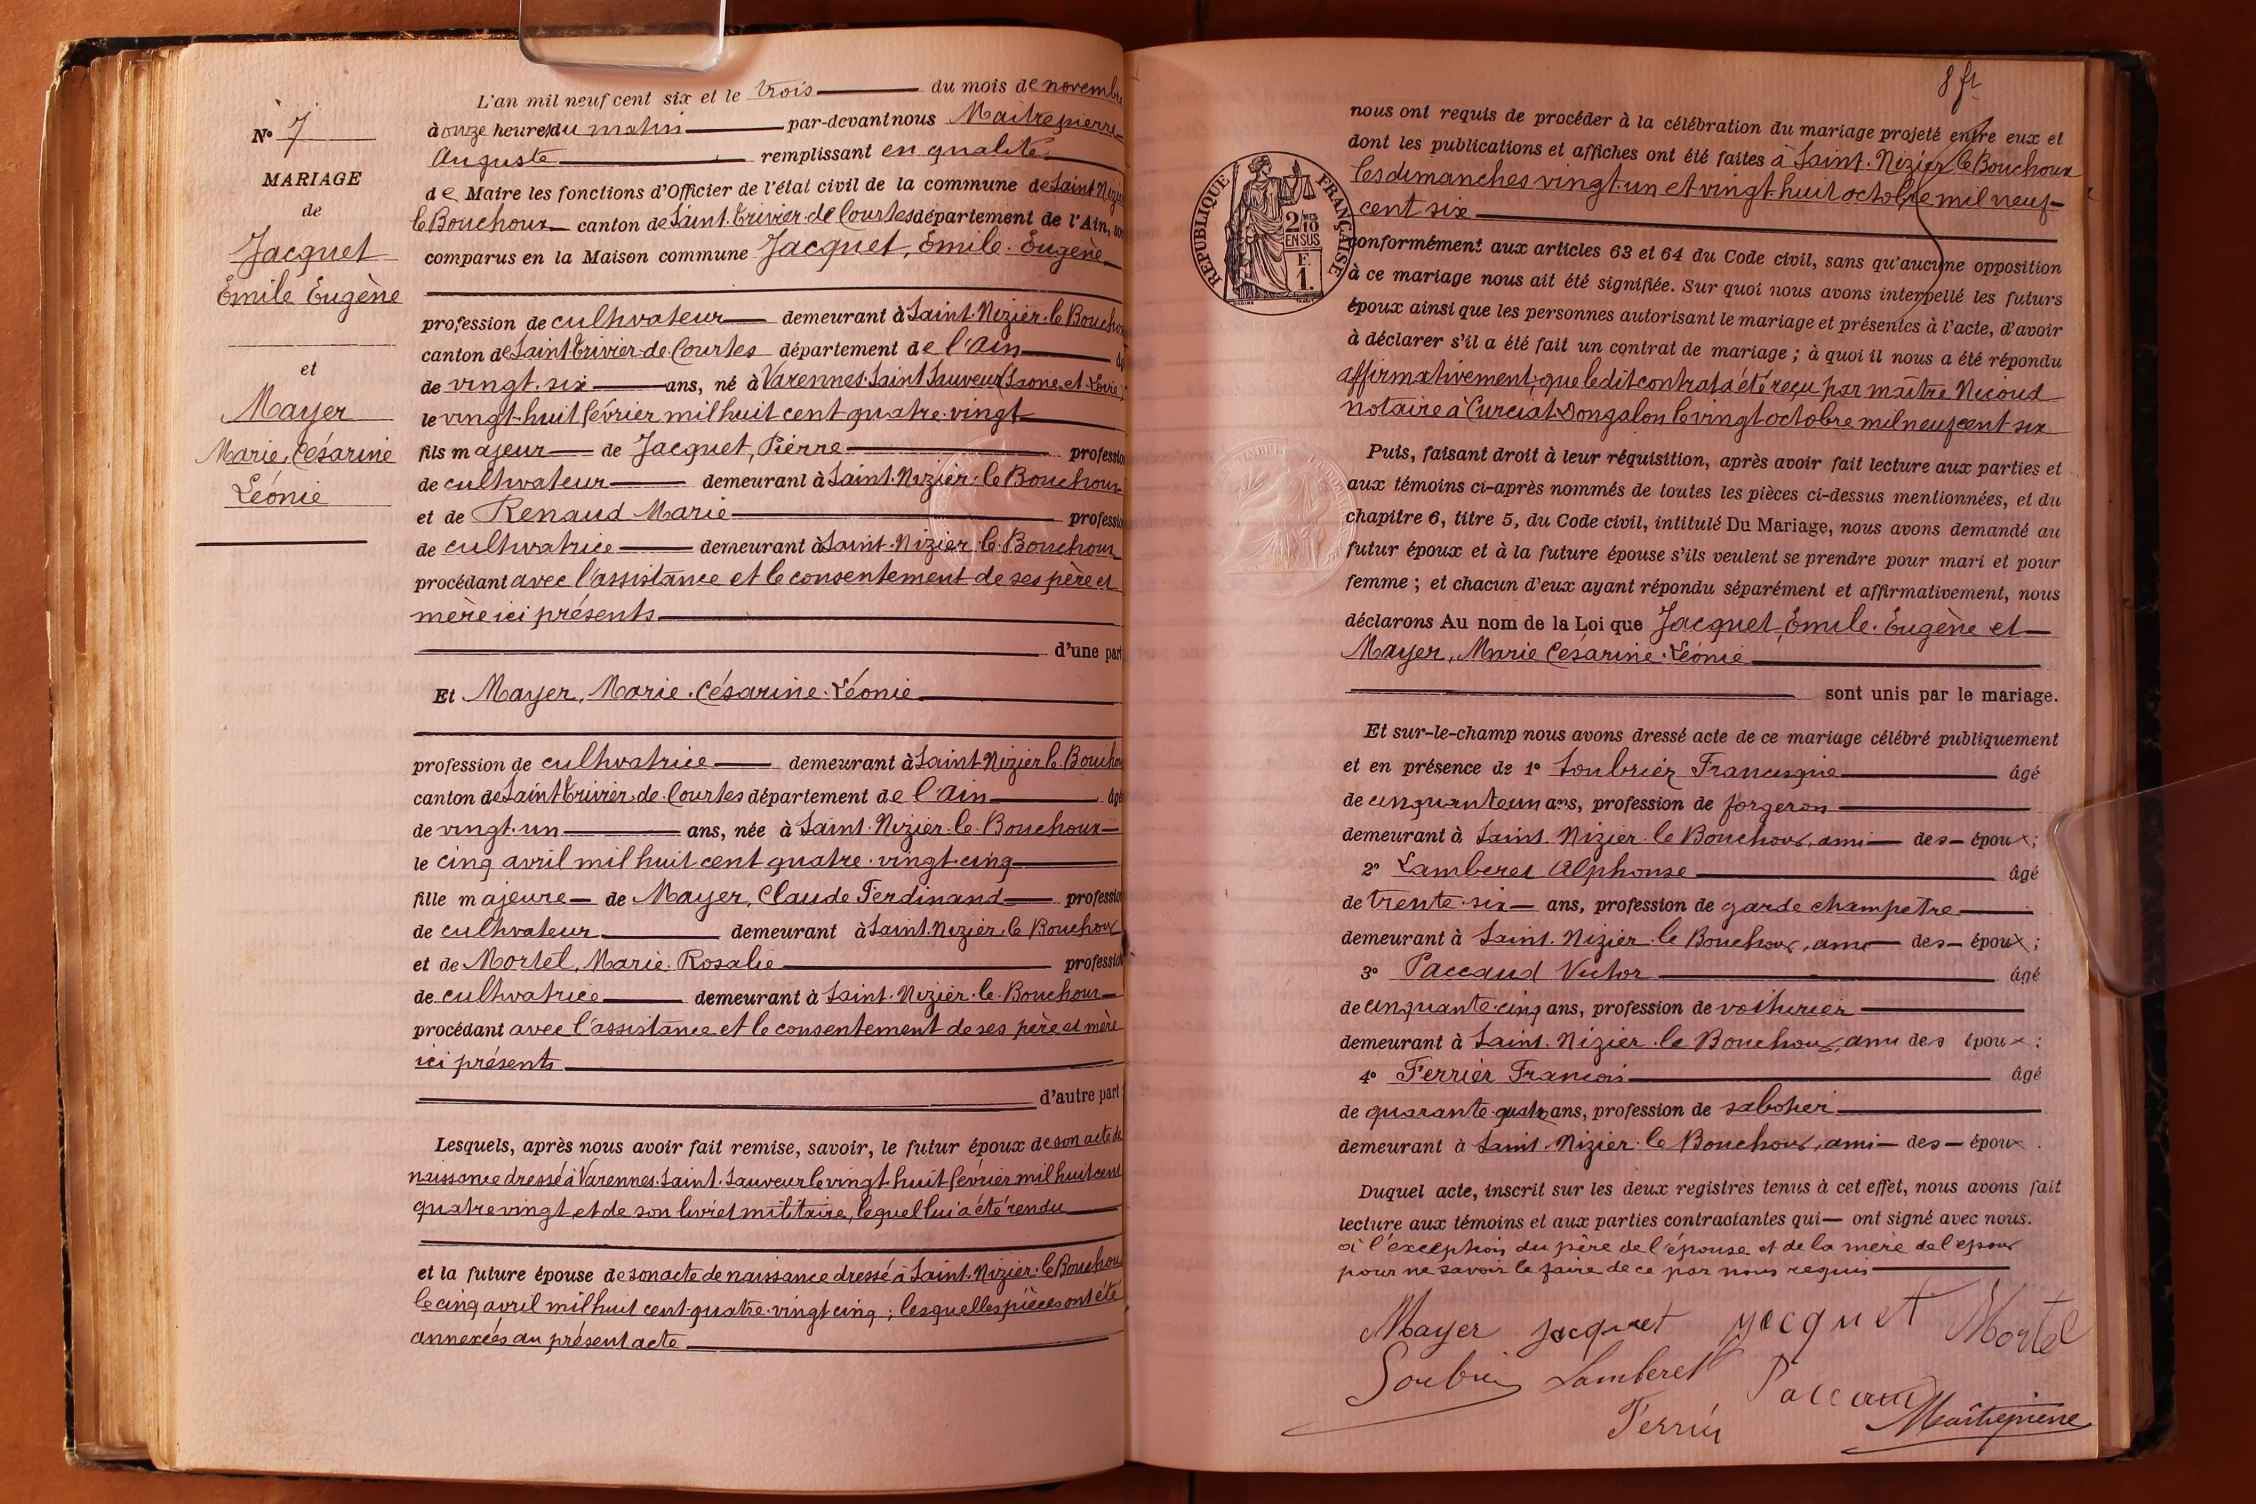 L'an mil neuf cent six et le trois du mois de novembre
à onze heures du matin par-devant nous Maitrepierre
Auguste remplissant en qualité
de Maire les fonctions d'Officier de l'état civil de la commune de Saint Nizier
le Bouchoux canton de Saint-Trivier-de Courtes département de l'Ain, sont
comparus en la Maison commune Jacquet, Émile. Eugène
N° 7
MARIAGE
de
Jacquet
Émile Eugène
et
Mayer
Marie, Césarine
Léonie
profession de cultivateur demeurant à Saint. Nizier. le Bouchoux
canton de Saint Trivier-de. Courtes département de l'ain âgé
de vingt. six ans, né à Varennes. Saint Sauveur (Saone. et. Loire)
le vingt-huit février mil huit cent quatre. vingt
fils majeur de Jacquet, Pierre profession
de cultivateur demeurant à Saint. Nizier. le Bouchoux
et de Renaud Marie profession
de cultivatrice demeurant à Saint. Nizier. le. Bouchoux
procédant avec l'assistance et le consentement de ses père et
mère ici présents
d'une part
Et Mayer, Marie. Césarine. Léonie
profession de cultivatrice demeurant à Saint-Nizier le. Bouchoux
canton de Saint Trivier. de. Courtes département de l'ain âgée
de vingt. un ans, née à Saint. Nizier. le. Bouchoux
le cinq avril mil huit cent quatre. vingt. cinq
fille majeure de Mayer, Claude Ferdinand profession
de cultivateur demeurant à Saint. Nizier. le Bouchoux
et de Mortel, Marie. Rosalie profession
de cultivatrice demeurant à Saint. Nizier. le. Bouchoux
procédant avec l'assistance et le consentement de ses père et mère
ici présents
d'autre part
Lesquels, après nous avoir fait remise, savoir, le futur époux de son acte de
naissance dressé à Varennes. Saint. Sauveur le vingt. huit février mil huit cent
quatre vingt, et de son livret militaire, lequel lui a été rendu
et la future épouse de son acte de naissance dressé à Saint. Nizier. le Bouchoux
le cinq avril mil huit cent-quatre. vingt cinq; lesquelles pièces ont été
annexées au présent acte
8 fr
nous ont requis de procéder à la célébration du mariage projeté entre eux et
dont les publications et affiches ont été faites à Saint. Nizier le Bouchoux
les dimanches vingt. un et vingt. huit octobre mil neuf
cent six
RÉPUBLIQUE FRANÇAISE
2/10
EN SUS
F.
1.
conformément aux articles 63 et 64 du Code civil, sans qu'aucune opposition
à ce mariage nous ait été signifiée. Sur quoi nous avons interpellé les futurs
époux ainsi que les personnes autorisant le mariage et présentes à l'acte, d'avoir
à déclarer s'il a été fait un contrat de mariage ; à quoi il nous a été répondu
affirmativement; que le dit contrat a été reçu par maître Nicoud
notaire à Curciat-Dongalon le vingt octobre mil neuf cent six
Puis, faisant droit à leur réquisition, après avoir fait lecture aux parties et
aux témoins ci-après nommés de toutes les pièces ci-dessus mentionnées, et du
chapitre 6, titre 5, du Code civil, intitulé Du Mariage, nous avons demandé au
futur époux et à la future épouse s'ils veulent se prendre pour mari et pour
femme ; et chacun d'eux ayant répondu séparément et affirmativement, nous
déclarons Au nom de la Loi que Jacquet, Émile. Eugène et
Mayer, Marie Césarine. Léonie
sont unis par le mariage.
Et sur-le-champ nous avons dressé acte de ce mariage célébré publiquement
et en présence de 1° Soubrier Francisque âgé
de cinquante un ans, profession de forgeron
demeurant à Saint. Nizier. le Bouchoux, ami des époux;
2° Lamberet Alphonse âgé
de trente. six ans, profession de garde champetre
demeurant à Saint. Nizier. le Bouchoux, ami des époux;
3° Paccaud Victor âgé
de cinquante. cinq ans, profession de voiturier
demeurant à Saint. Nizier. le Bouchoux, ami des époux:
4° Ferrier François âgé
de quarante. quatre ans, profession de sabotier
demeurant à Saint. Nizier. le Bouchoux, ami des époux.
Duquel acte, inscrit sur les deux registres tenus à cet effet, nous avons fait
lecture aux témoins et aux parties contractantes qui ont signé avec nous.
à l'exception du père de l'épouse et de la mère de l'époux
pour ne savoir le faire de ce par nous requis
Mayer Jacquet Jacquet Mortel
Soubrier Lamberet Paccaud
Ferrier Maitrepierre